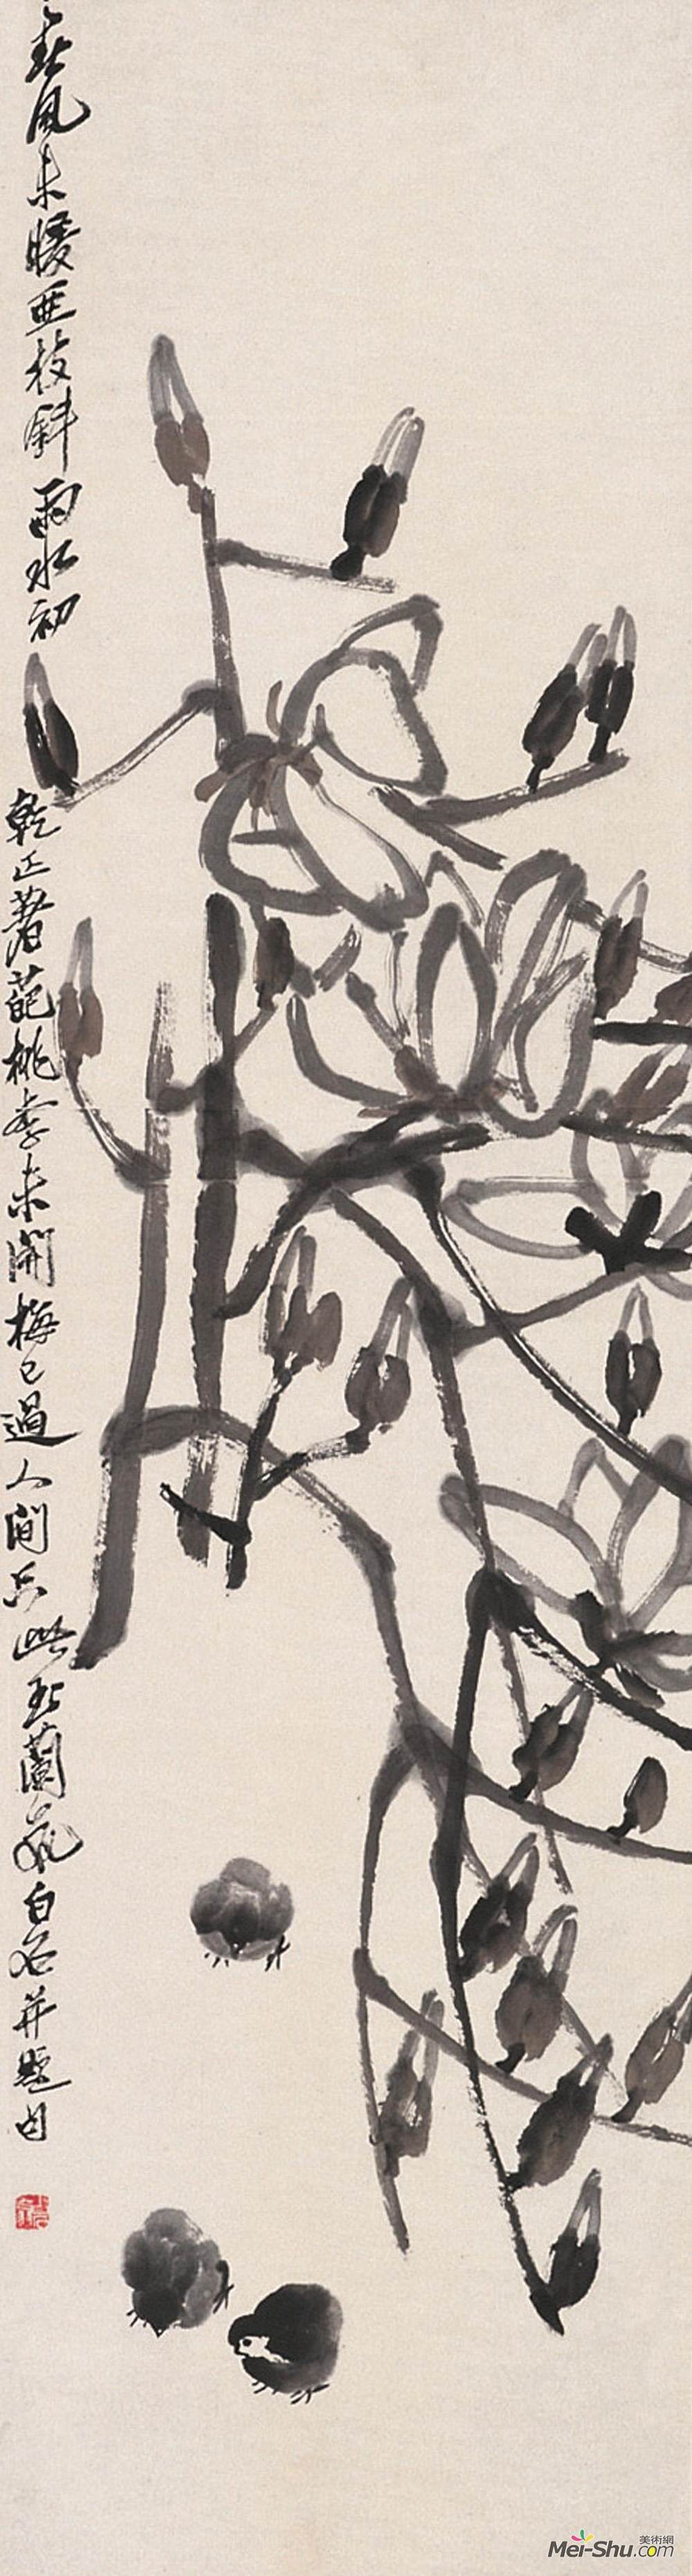 春風未暖亞枝斜雨水初乾正著葩桃李未開梅已過人間只此玉蘭花白石并題句
美術網
Mei-Shu.com